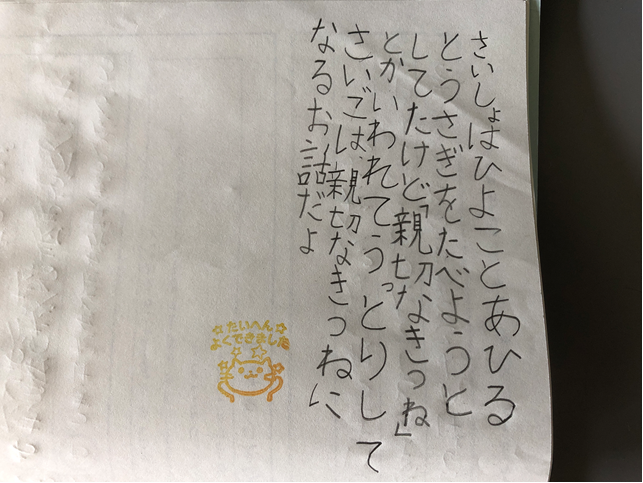 さいしょはひよことあひる
とうさぎをたべようと
してたけど「親切なきつね」
とかいわれてうっとりして
さいごは、親切なきつねに
なるお話だよ
☆たいへん☆
よくできました